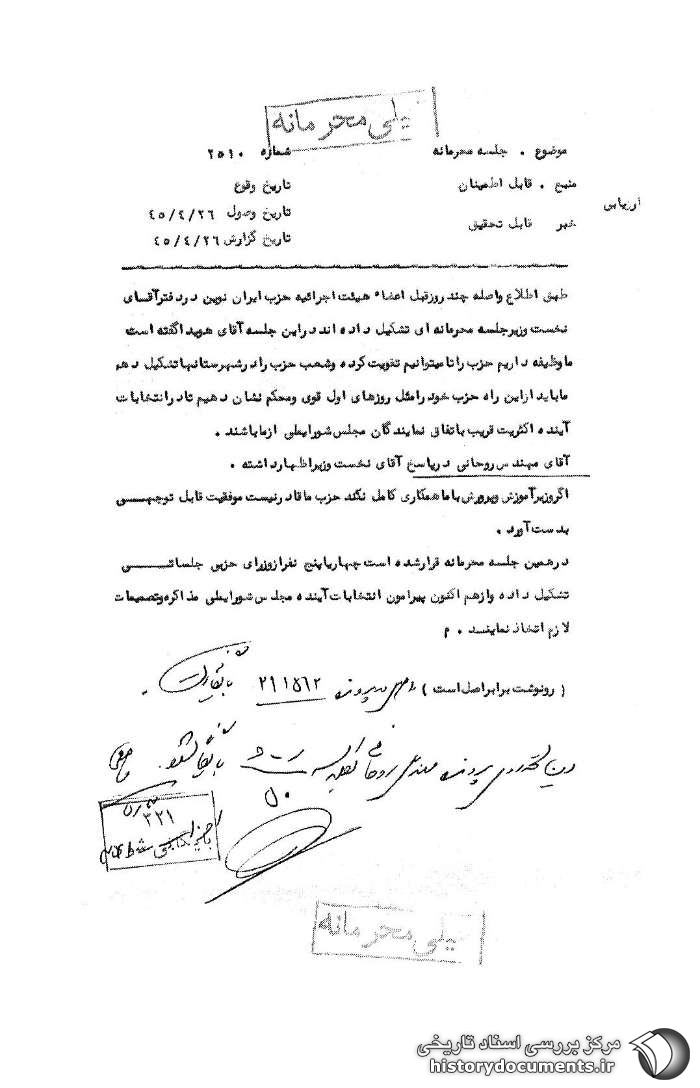 خیلی محرمانه
موضوع . جلسه محرمانه شماره ۲۵۱۰
منبع . قابل اطمینان تاریخ وقوع
ارزیابی
تاریخ وصول ۴۵/۴/۲۶
خبر قابل تحقیق
تاریخ گزارش ۴۵/۴/۲۶
طبق اطلاع واصله چند روز قبل اعضاء هیئت اجرائیه حزب ایران نوین در دفتر آقای
نخست وزیر جلسه محرمانه ای تشکیل داده اند در این جلسه آقای هویدا گفته است
ما وظیفه داریم حزب را تا میتوانیم تقویت کرده و شعب حزب را در شهرستانها تشکیل دهم
ما باید از این راه حزب خود را مثل روزهای اول قوی و محکم نشان دهیم تا در انتخابات
آینده اکثریت قریب باتفاق نمایندگان مجلس شورایملی از ما باشند .
آقای مهندس روحانی در پاسخ آقای نخست وزیر اظهار داشته .
اگر وزیر آموزش و پرورش با ما همکاری کامل نکند حزب ما قادر نیست موفقیت قابل توجهی
بدست آورد .
در همین جلسه محرمانه قرار شده است چهار یا پنج نفر از وزرای حزبی جلساتی
تشکیل داده و از هم اکنون پیرامون انتخابات آینده مجلس شورایملی مذاکره و تصمیمات
لازم اتخاذ نمایند . م
( رونوشت برابر اصل است ) پرونده ۲۹۱۵۶۲
پرونده روحانی
۳۲۱
بایگانی
خیلی محرمانه
مرکز بررسی اسناد تاریخی
historydocuments.ir